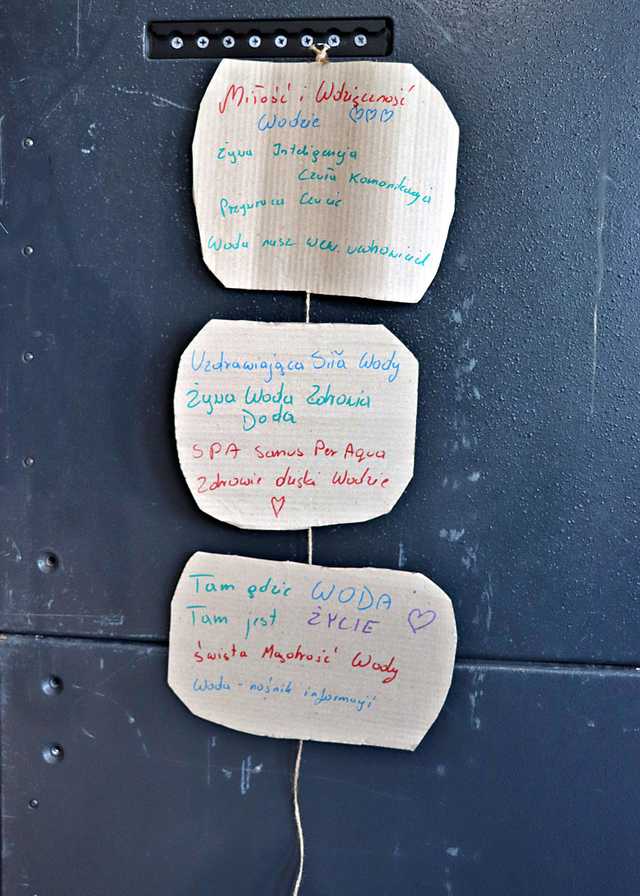 Miłość i Wdzięczność
Wodzie
Żywa Inteligencja
Czuła Komunikacja
Czucie
Woda nasz
Uzdrawiająca Siła Wody
Żywa Woda Zdrowia
Doda
SPA Sanus Per Aqua
Zdrowie dzięki Wodzie
Tam gdzie WODA
Tam jest ŻYCIE
Święta Mądrość Wody
Woda - nośnik informacji